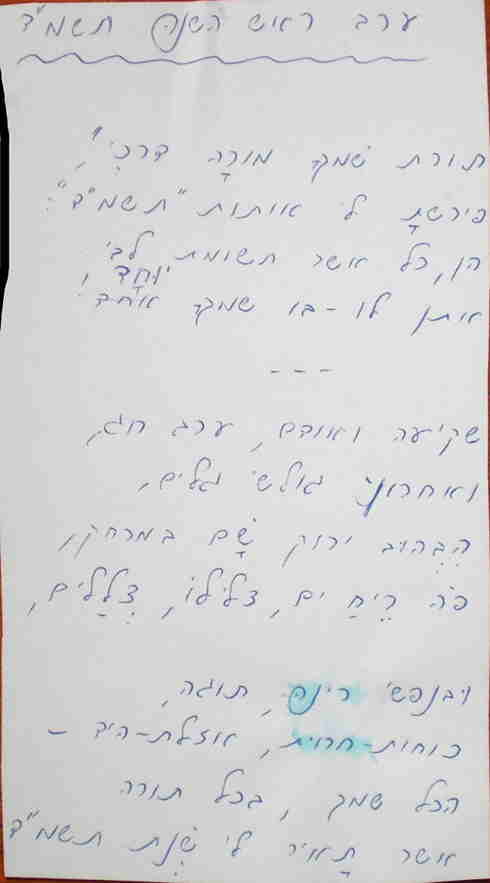 ערב ראש השנה תשמ"ד
תורת שמך מורָה דרכִּי",
פירשתָ לי אותות "תשמ"ד":
הן, כל אשר תשומת לבי
יוּחָד,
איתן לו - בו שמך אחד.
---
שקיעה ואודם, ערב חג,
ואחרוני גולשי גלים,
הִבְהוּב ירוק שָׁם במרחק,
פה רֵיחַ ים, צלילוֹ, צְלָלים,
ובנפשי רינה, תוגה,
כוחות-חרות, אוזלת-היד -
הכל שמך, בכל תורה
אשר תָאיר לי שְׁנת תשמ"ד